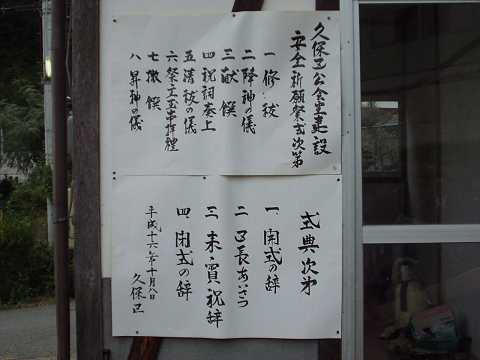 久保区公会堂建設
安全祈願祭式次第
一 修祓
二 降神の儀
三 献饌
四 祝詞奏上
五 清祓の儀
六 祭主玉串拝礼
七 撤饌
八 昇神の儀
式典次第
一、開式の辞
二 区長あいさつ
三、来賓祝辞
四、閉式の辞
平成十六年十月八日
久保区